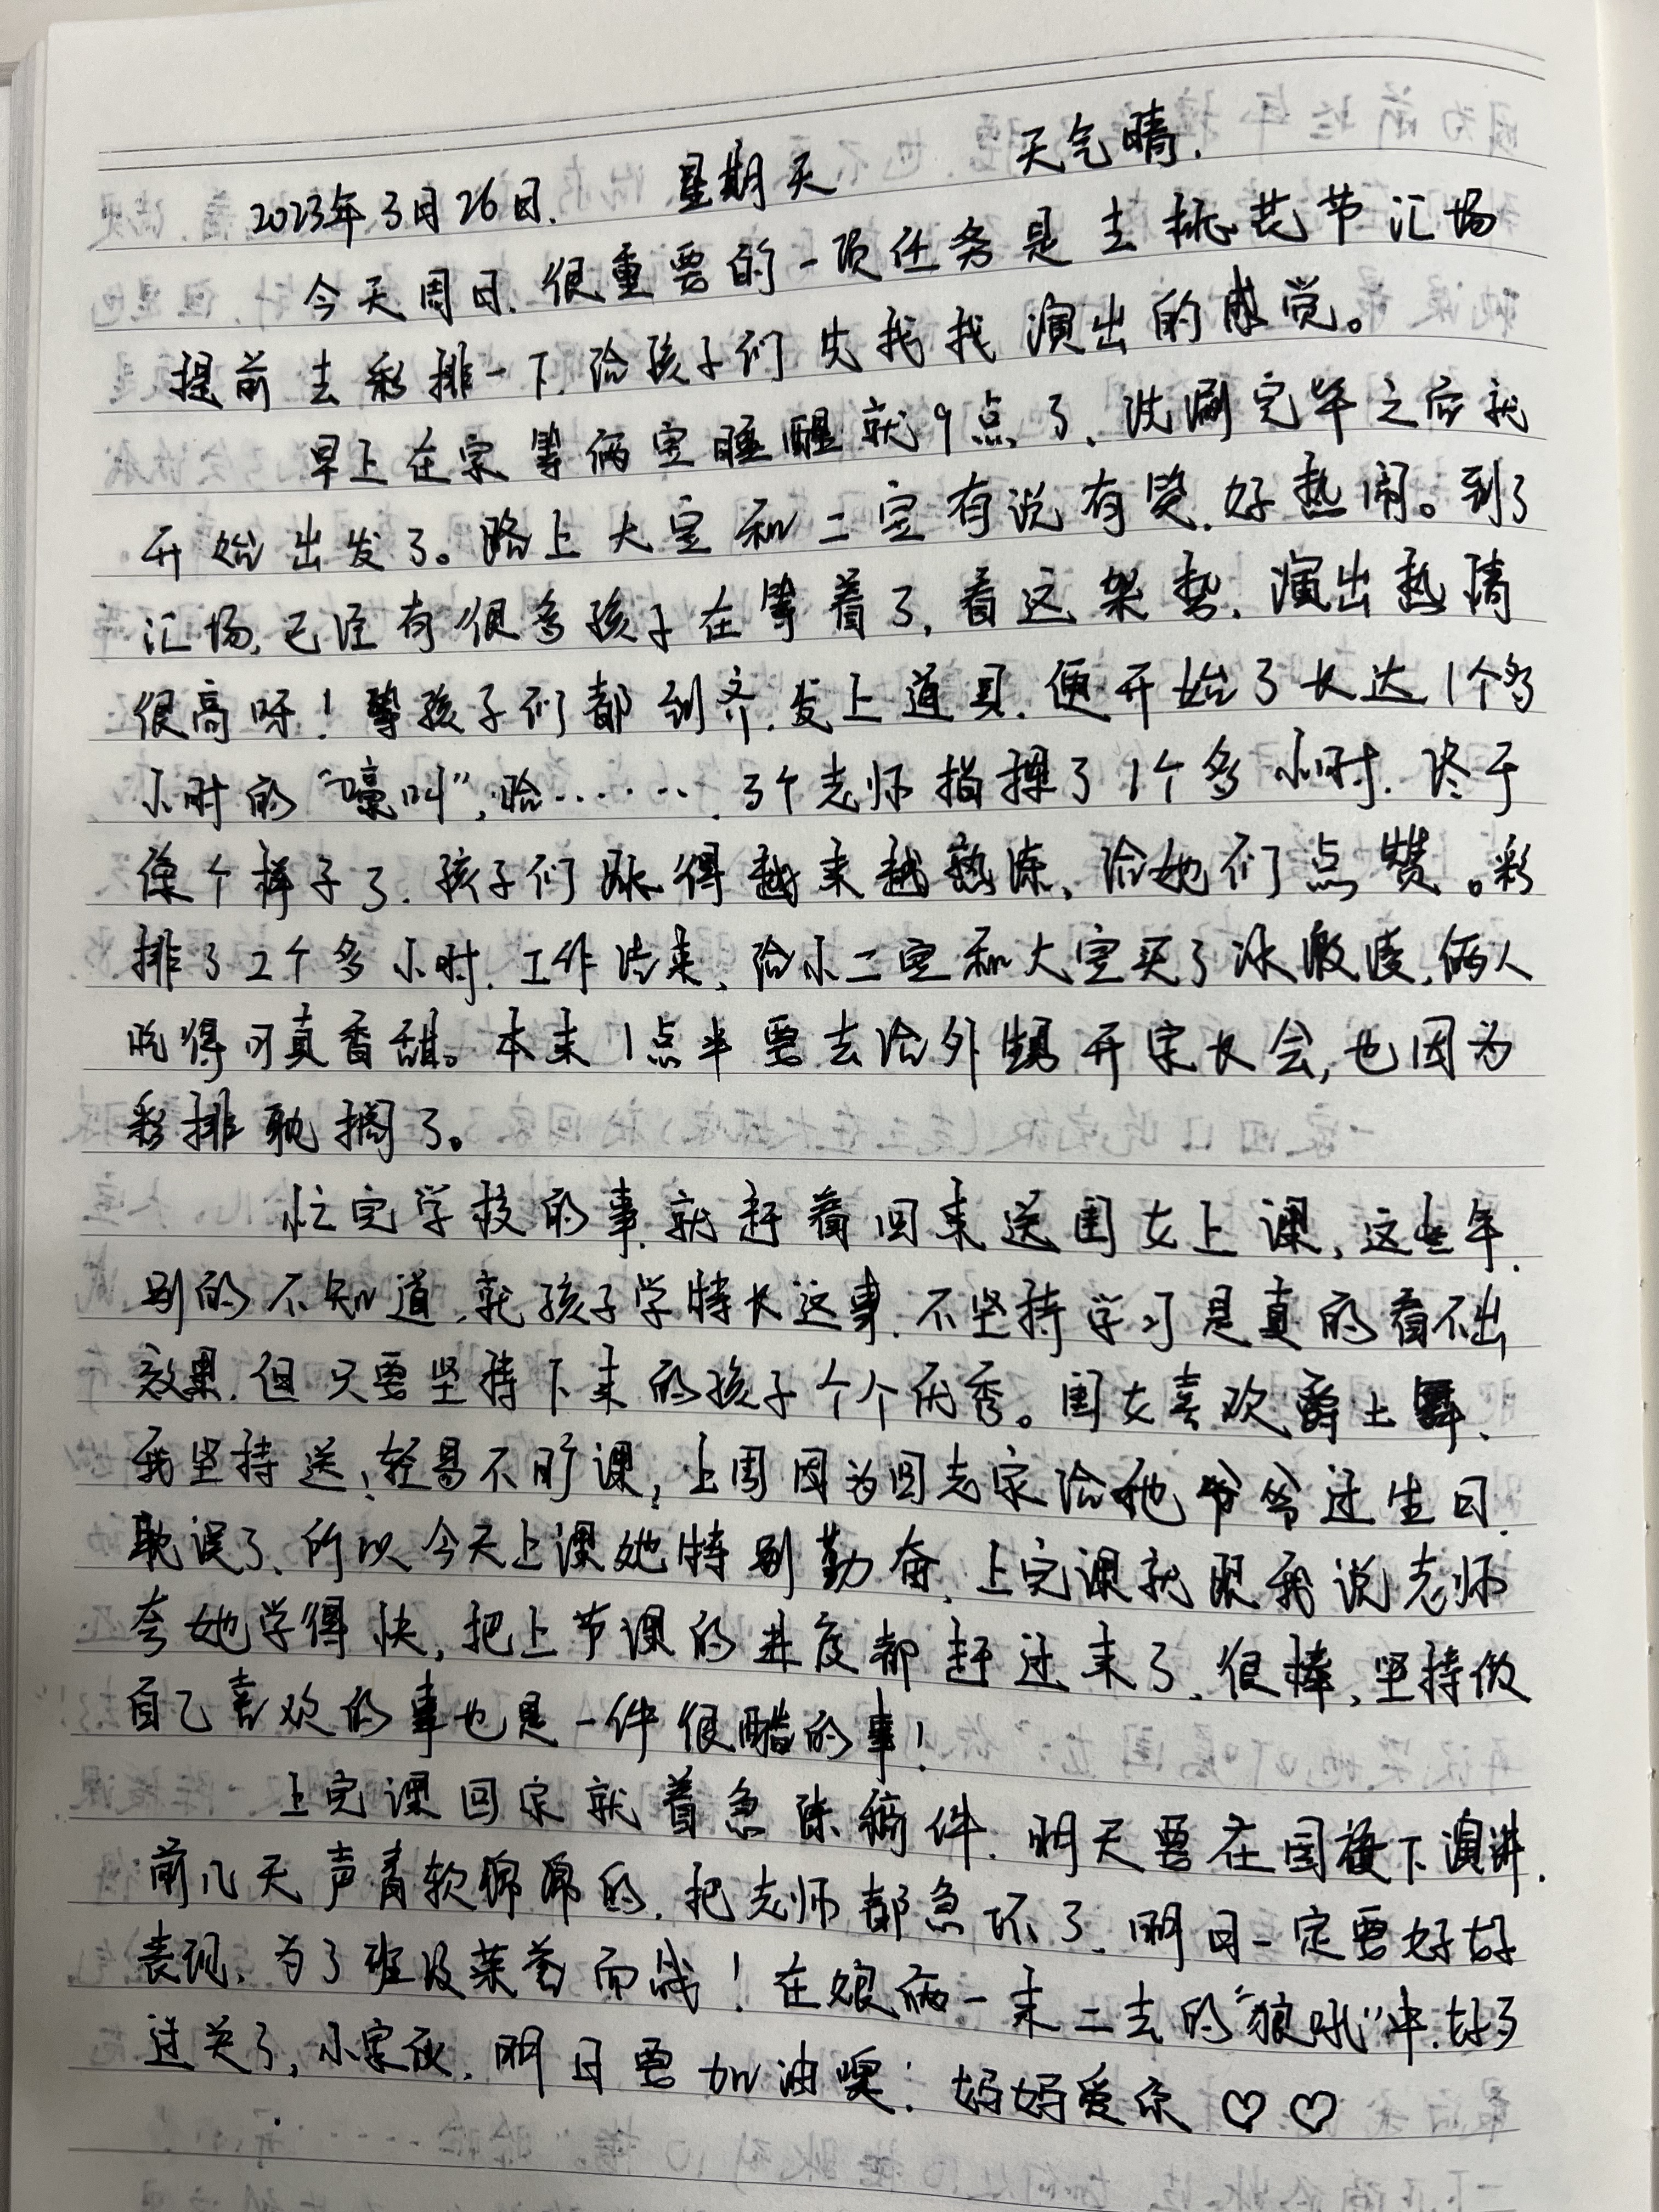 2023年3月26日. 星期天 天气晴.
今天周日.很重要的一项任务是去桃花节汇场
提前去彩排一下.给孩子们先找找演出的感觉。
早上在家等俩宝睡醒就9点了、洗涮完毕之后就
开始出发了。路上大宝和二宝有说有笑.好热闹。到了
汇场,已经有很多孩子在等着了,看这架势.演出热情
很高呀!等孩子们都到齐.发上道具.便开始了长达1个多
小时的“嚎叫”,哈……. 3个老师指挥了1个多小时.终于
像个样子了.孩子们跳得越来越熟练、给她们点赞。彩
排了2个多小时.工作结束、给小二宝和大宝买了冰激凌,俩人
吃得可真香甜。本来1点半要去给外甥开家长会,也因为
彩排耽搁了。
忙完学校的事.就赶着回来送闺女上课、这些年.
别的不知道.就孩子学特长这事.不坚持学习是真的看不出
效果.但只要坚持下来的孩子个个优秀。闺女喜欢爵士舞、
我坚持送、轻易不旷课,上周因为回老家给他爷爷过生日.
耽误了、所以今天上课她特别勤奋、上完课就跟我说老师
夸她学得快,把上节课的进度都赶过来了、很棒、坚持做
自己喜欢的事也是一件很酷的事!
上完课回家就着急练稿件.明天要在国旗下演讲.
前几天声音软绵绵的.把老师都急坏了.明日一定要好好
表现、为了班级荣誉而战!在娘俩一来二去的“狼吼”中.好歹
过关了,小家伙.明日要加油噢!妈妈爱你♡♡